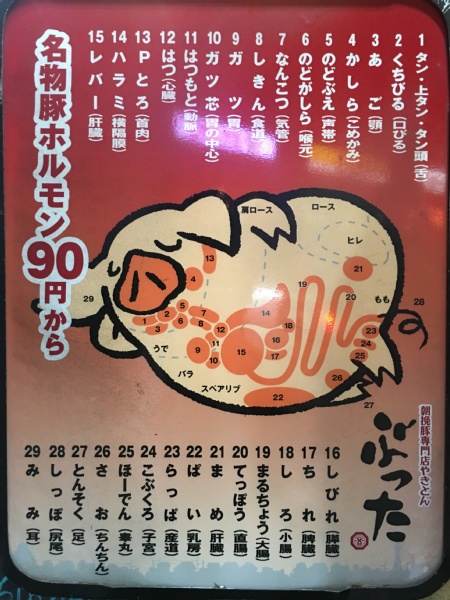 1 タン・上タン・タン頭(舌)
2 くちびる(口びる)
3 あご(顎)
4 かしら(こめかみ)
5 のどぶえ(声帯)
6 のどがしら(喉元)
7 なんこつ(気管)
8 しきん(食道)
9 ガツ(胃)
10 ガツ芯(胃の中心)
11 はつもと(動脈)
12 はつ(心臓)
13 Pとろ(首肉)
14 ハラミ(横隔膜)
15 レバー(肝臓)
名物豚ホルモン90円から
肩ロース
ロース
ヒレ
もも
うで
バラ
スペアリブ
1
2
3
4
5
6
7
8
9
10
11
12
13
14
15
16
17
18
19
20
21
22
22
23
24
25
26
27
28
29
朝挽豚専門店やきとん
ぶった
16 しびれ(膵臓)
17 ちれ(脾臓)
18 しろ(小腸)
19 まるちょう(大腸)
20 てっぽう(直腸)
21 まめ(肝臓)
22 ぱい(乳房)
23 らっぱ(産道)
24 こぶくろ(子宮)
25 ほーでん(睾丸)
26 さお(ちんちん)
27 とんそく(足)
28 しっぽ(尻尾)
29 みみ(耳)